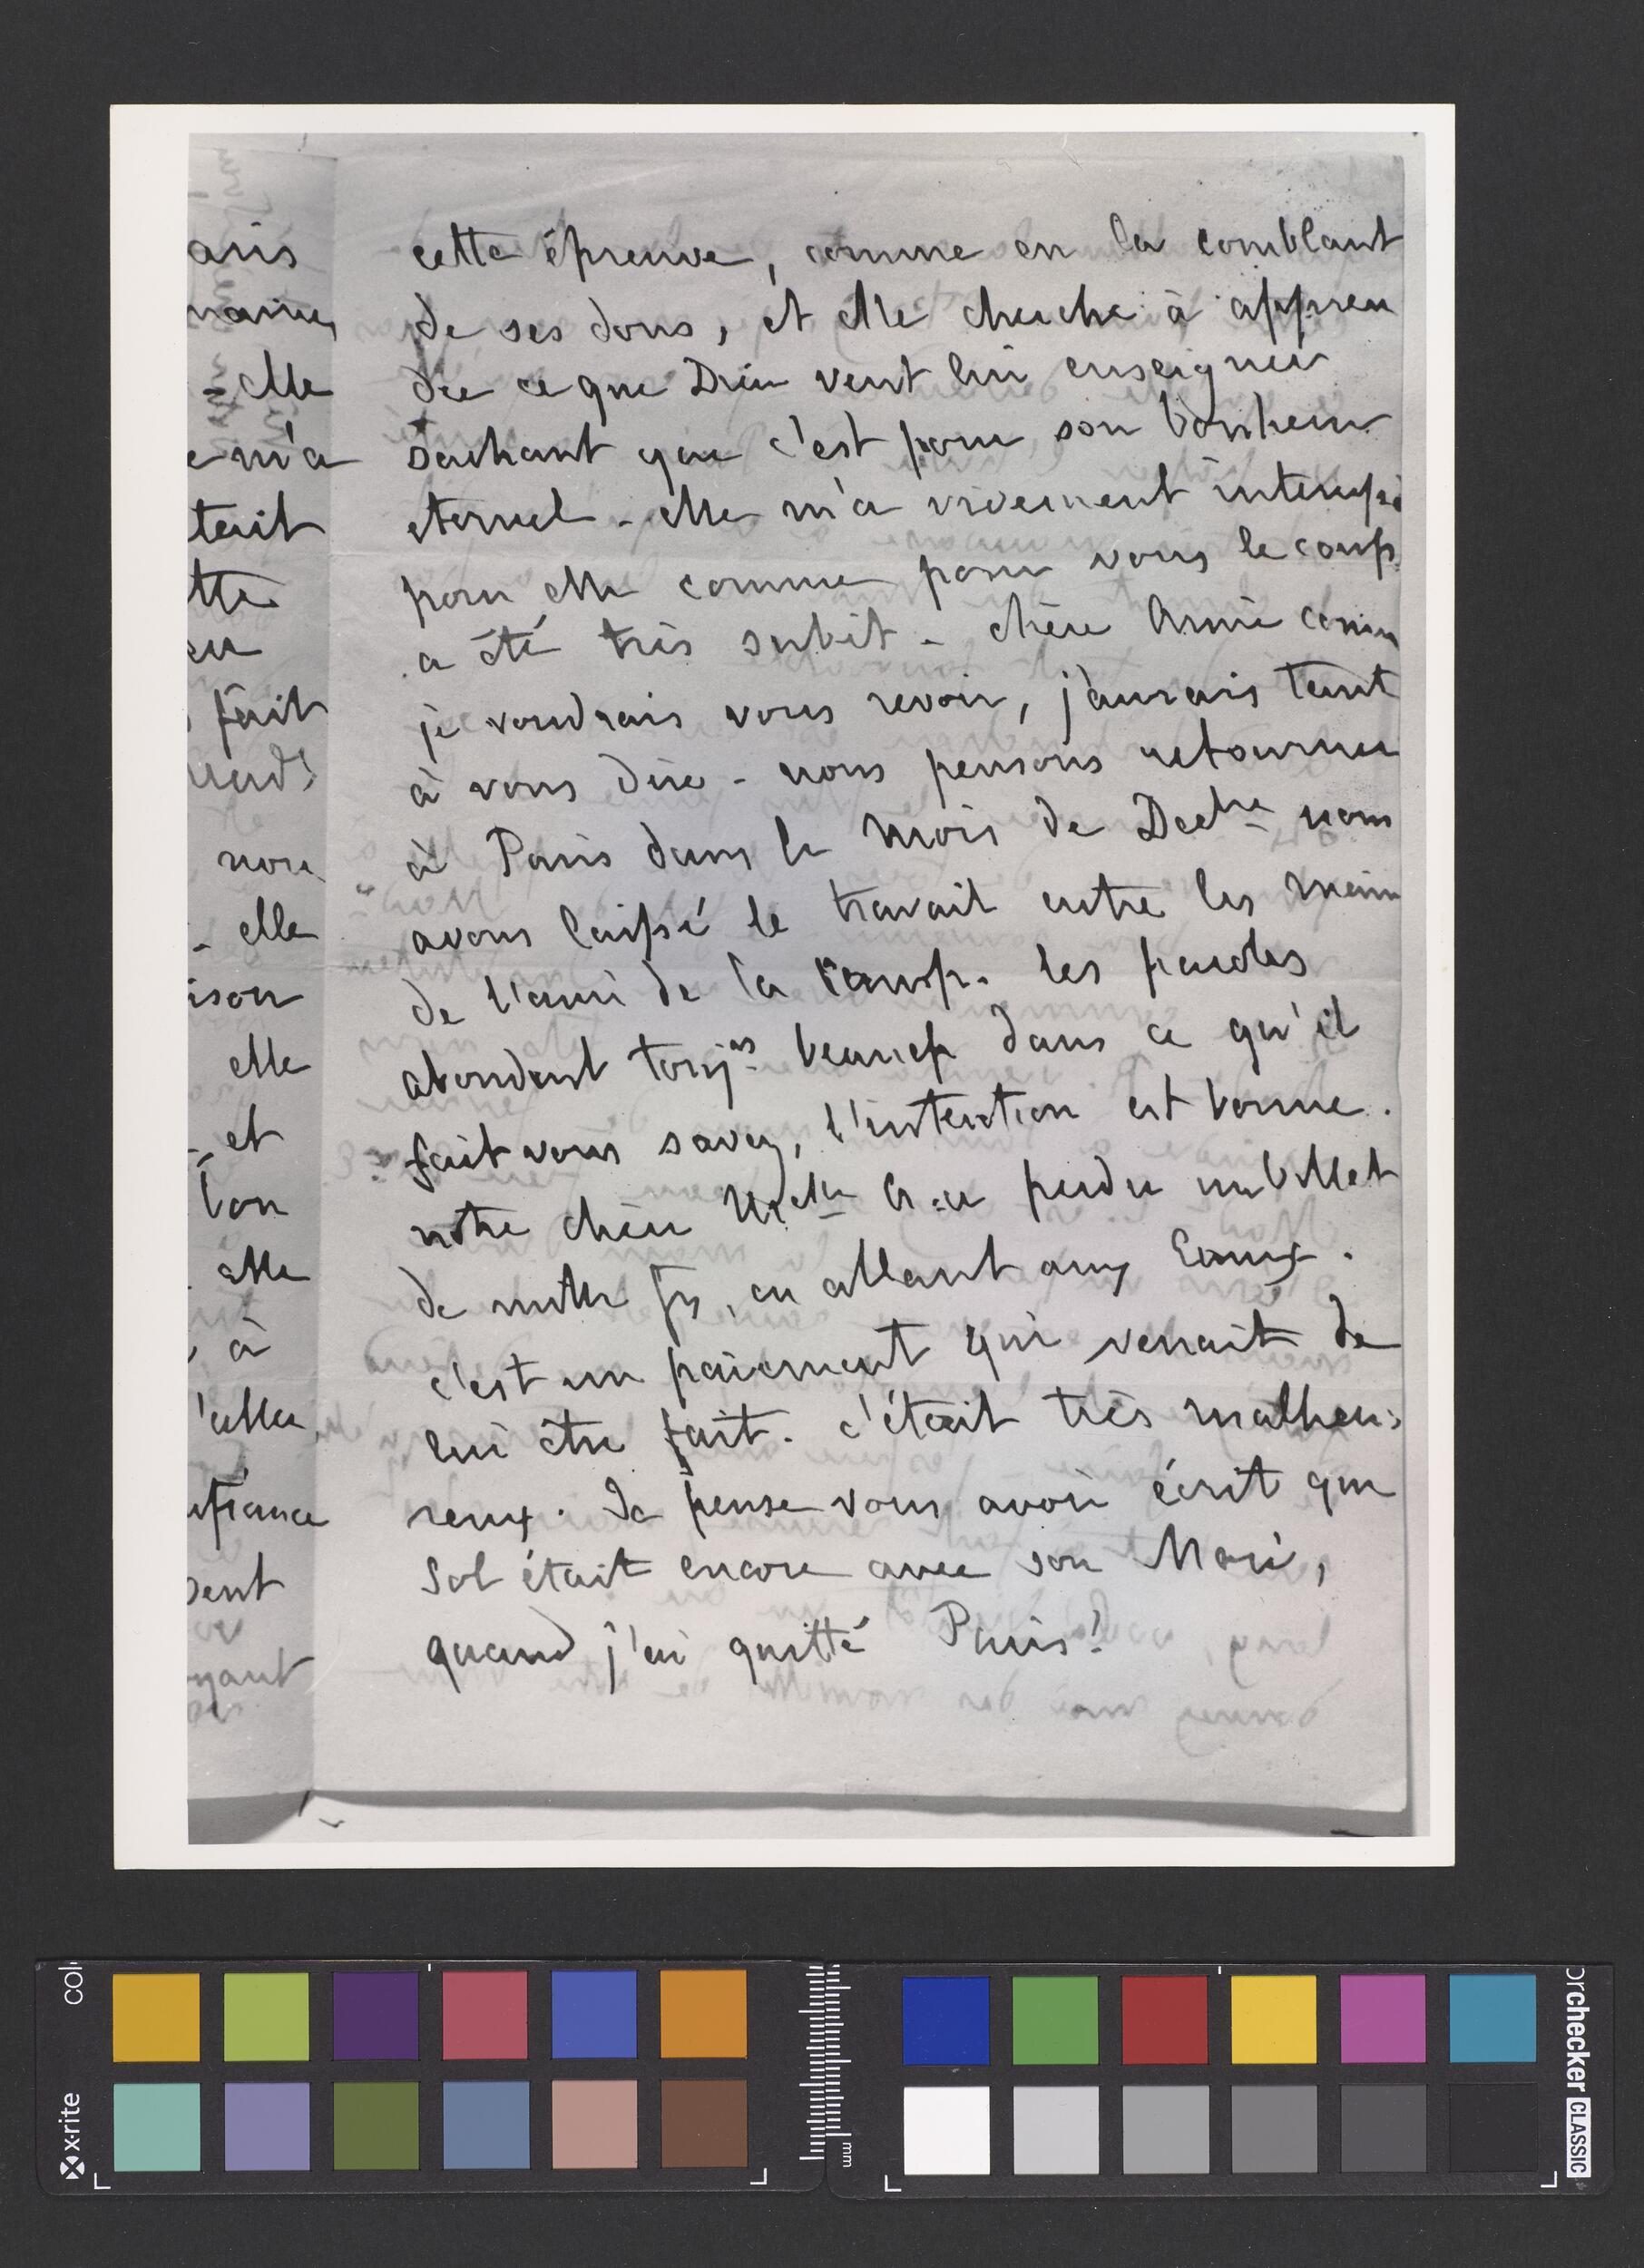 aris
elle
m'a
tait
tte
fait
elle
ison
elle
et
bon
elle
à
yant
cette épreuve, comme en la comblant
de ses dons, et elle cherche à appren
dre ce que Dieu veut lui enseigner
sachant que c'est pour son bonheur
eternel - elle m'a vivement interessé
pour elle comme pour vous le coup
a été très subit - chère Amie comm
je voudrais vous revoir, j'aurais tant
à vous dire - nous pensons retourner
à Paris dans le mois de Decbre nous
avons laissé le travail entre les main
de l'ami de la les paroles
abondent toujrs beaucp dans ce qu'il
fait vous savez, l'intention est bonne.
notre chère Melle a perdu un billet
de mille frs, en allant aux Eaux.
c'est un paiement qui venait de
lui être fait. c'était très malheu=
reux. Je pense vous avoir écrit que
Sol était encore avec son Mari,
quand j'ai quitté Paris!
colo
x-rite
mm
orchecker CLASSIC